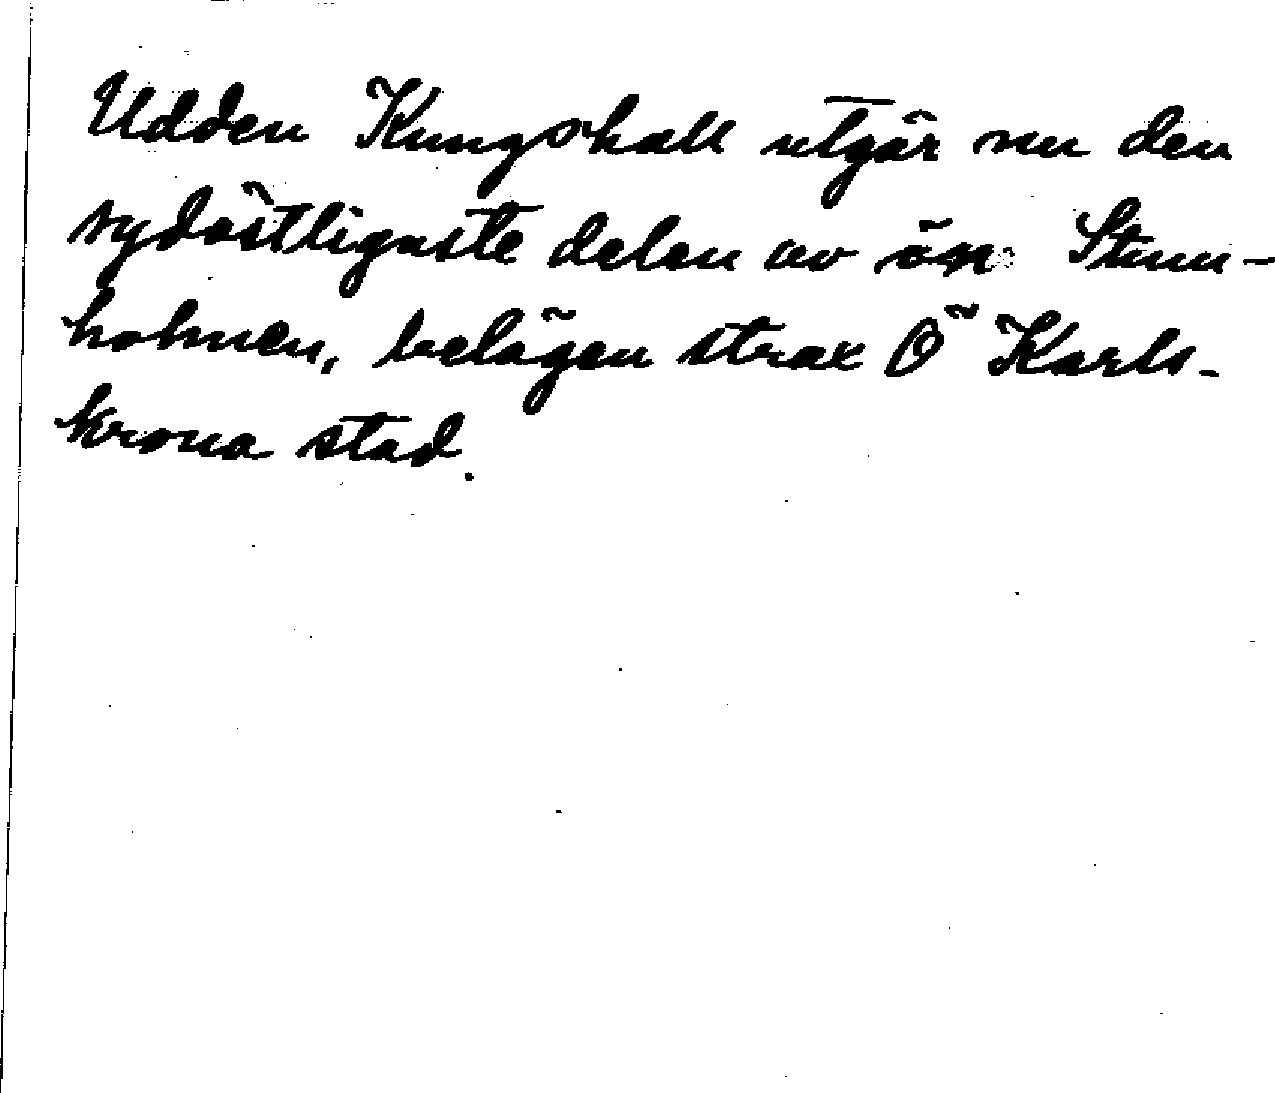 Udden Kungshall utgör nu den
sydöstligaste delen av ön Stum-
holmen, belägen strax Ö Karls-
krona stad.